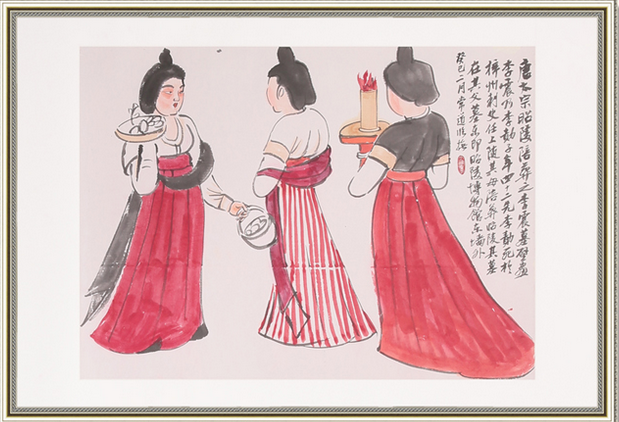 唐太宗昭陵陪葬之李震墓壁畫
李震乃李勣子年四十二先李勣死於
梓州刺史任上陵其母洛葬昭陵其墓
在其父墓东即昭陵博物館东墙外
癸巳一月常道